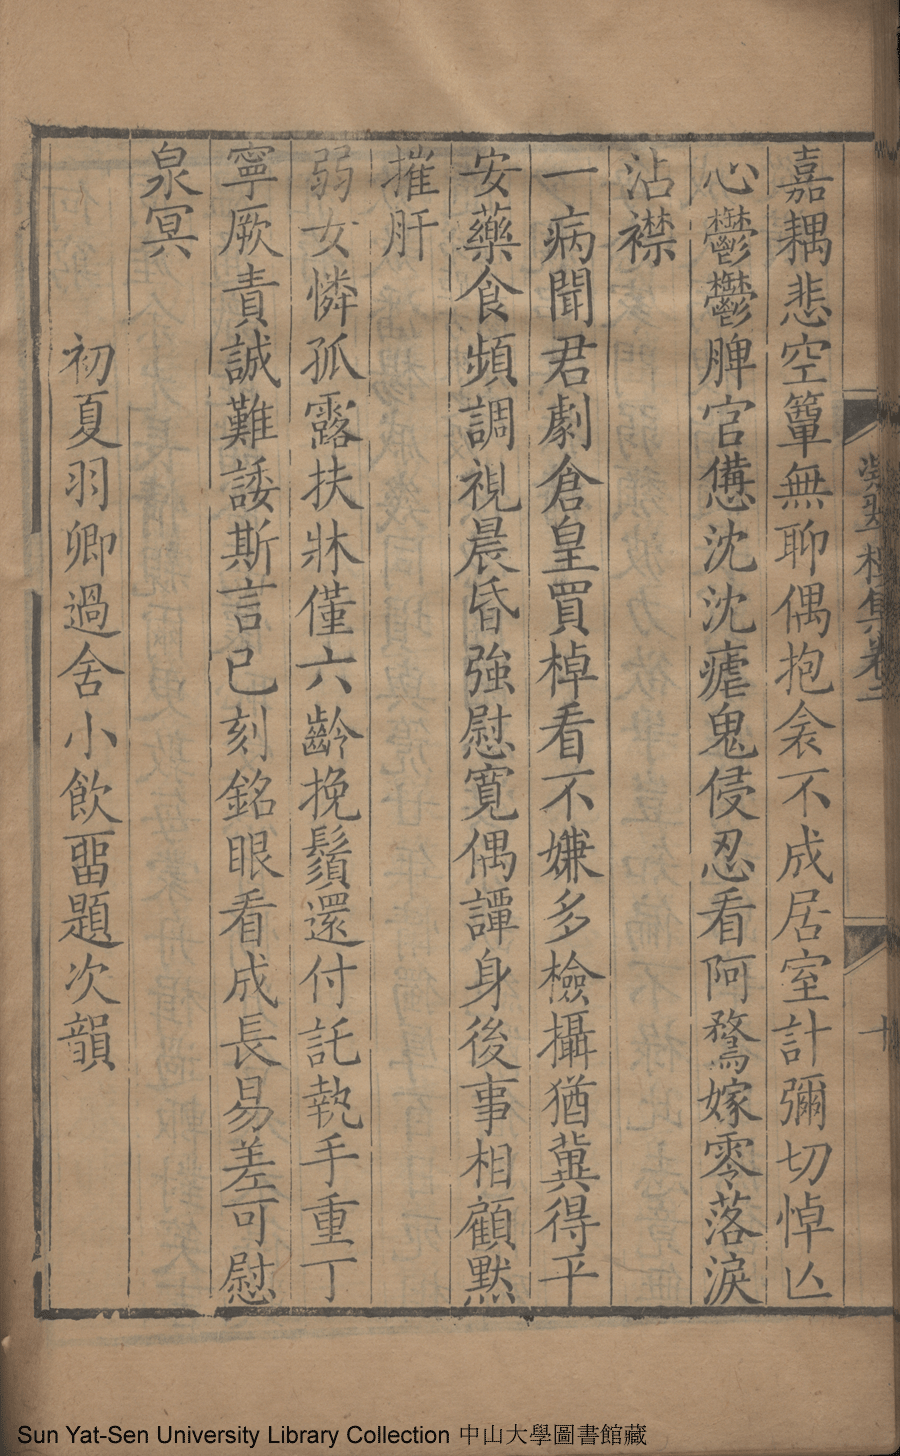 嘉耦悲空簟無聊偶抱衾不成居室計彌切悼亾
心鬱鬱脾官憊沈沈瘧鬼侵忍看阿鶩嫁零落淚
沾襟
一病聞君劇倉皇買棹看不嫌多檢攝猶冀得平
安藥食頻調視晨昏強慰寬偶譚身後事相顧黙
摧肝
弱女憐孤露扶牀僅六齡挽鬚還付託執手重丁
寧厥責誠難諉斯言已刻銘眼看成長易差可慰
泉冥
初夏羽卿過舍小飲畱題次韻
樓集卷二
十
Sun Yat-Sen University Library Collection 中山大學圖書館藏